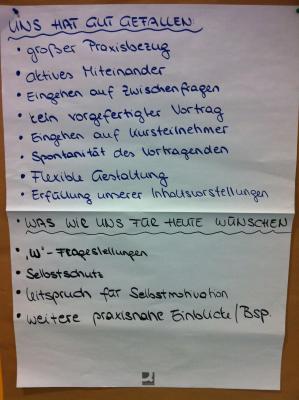 UNS HAT GUT GEFALLEN:
• großer Praxisbezug
• aktives Miteinander
• Eingehen auf Zwischenfragen
• kein vorgefertigter Vortrag
• Eingehen auf Kursteilnehmer
• Spontanität des Vortragenden
• Flexible Gestaltung
• Erfüllung unserer Inhaltsvorstellungen
• WAS WIR UNS FÜR HEUTE WÜNSCHEN
• „W"-Fragestellungen
• Selbstschutz
• Leitspruch für Selbstmotivation
• weitere praxisnahe Einblicke/Bsp.